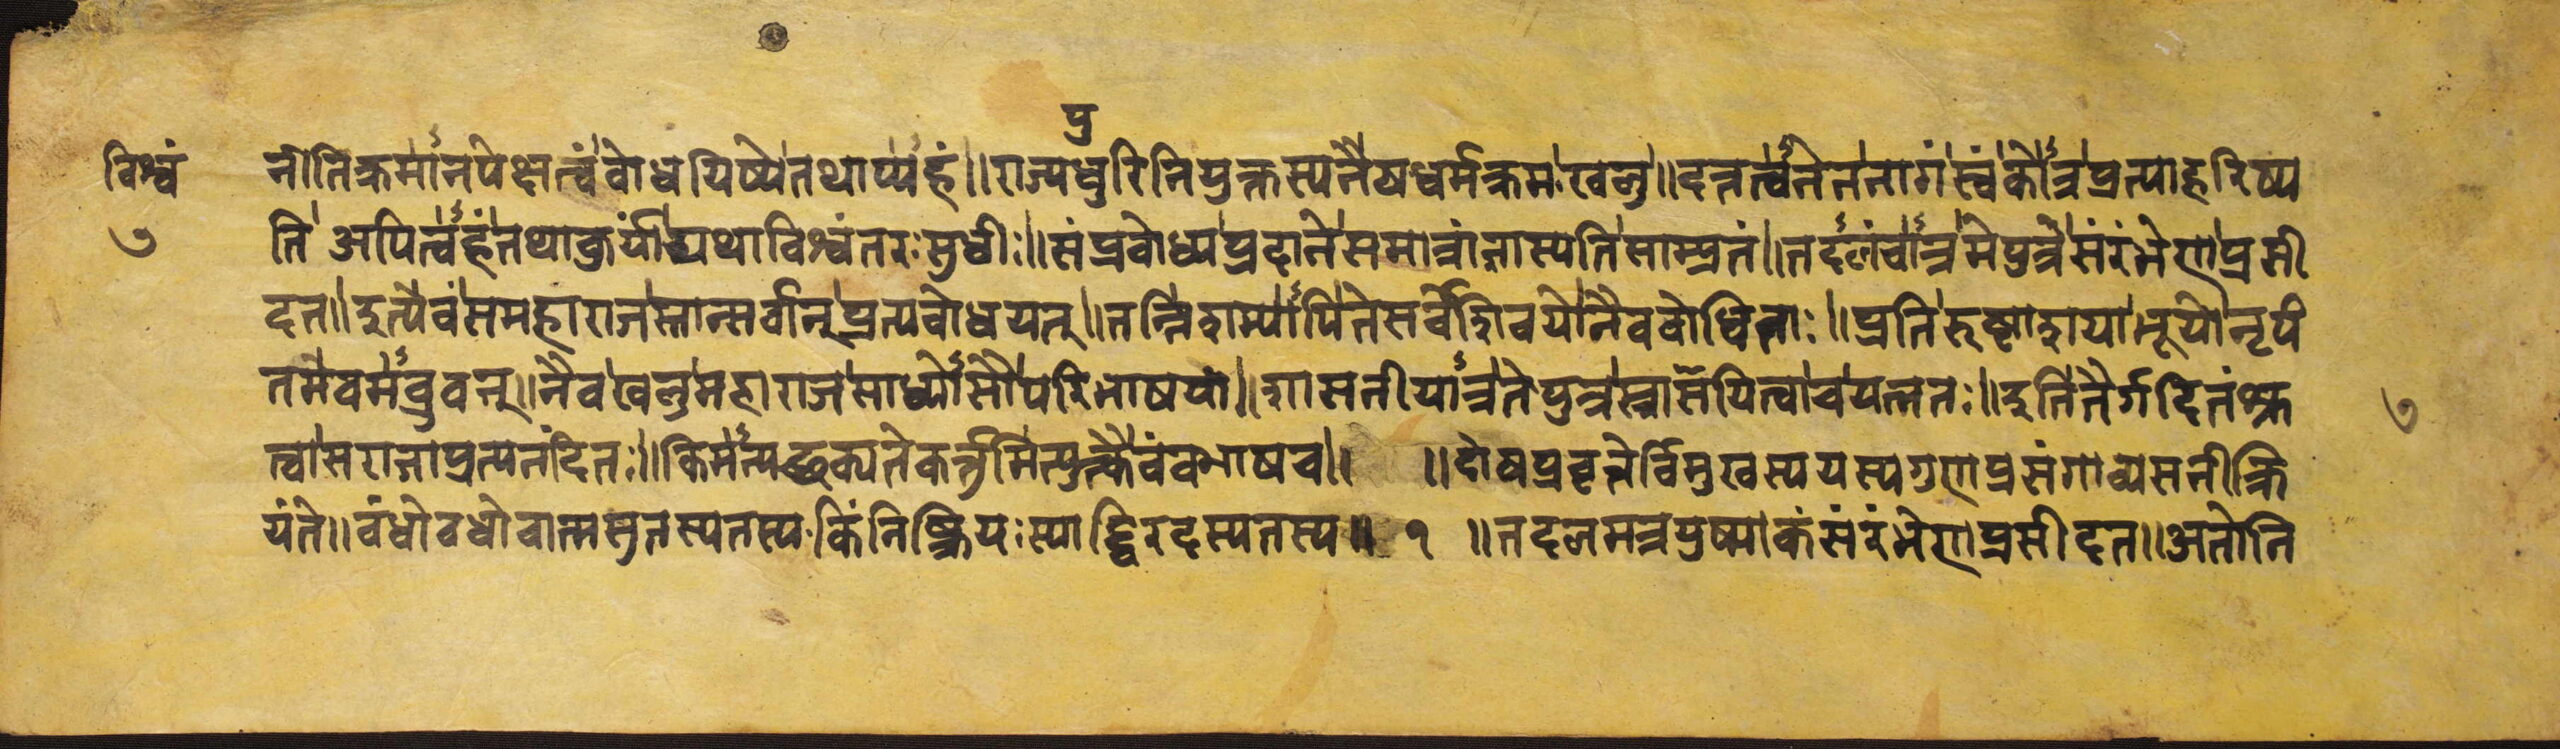 पु
विश्वं नीतिक्रमानपेक्षत्वं बोधयिष्ये तथाप्यहं॥ राज्यधुरिनियुक्तस्य नैषधर्मक्रमः खलु॥ दत्तत्वनेन नागं स्वं कोत्र प्रत्याहरिष्य
७ ति अपि त्वहं तथा कुर्यां यथा विश्वंतरः सुधीः॥ संप्रबोध्य प्रदाने समात्रां ज्ञास्यति साम्प्रतं॥ तदलं चात्र मे पुत्रे संरंभेण प्रसी
दत॥ इत्येवं स महाराजस्तान्सर्वान् प्रत्यबोधयत्॥ तन्निशम्यापि ते सर्वे शिवयो नैव बोधिताः॥ प्रतिरुष्टाशया भूयो नृपं
तमेवमब्रुवन्॥ नैव खलु महाराज साध्योसौ परिभाषया॥ शासनीयोत्र ते पुत्रस्त्रासयित्वा च यत्नतः॥ इति तैर्गदितं श्रु ७
त्वा स राजा प्रत्यनंदितः॥ किमन्यद्धक्यते कर्त्तुमित्युक्त्कैवं बभाष च॥ ॥ दोषप्रवृत्तेर्विमुखस्य यस्य गुणप्रसंगा व्यसनीक्रि
यंते॥ बंधो वधो वात्मसुतस्य तस्य किं निष्क्रियः स्याद्द्विरदस्य तस्य॥ १ ॥ तदलमत्र युष्माकं संरंभेण प्रसीदत॥ अतो नि